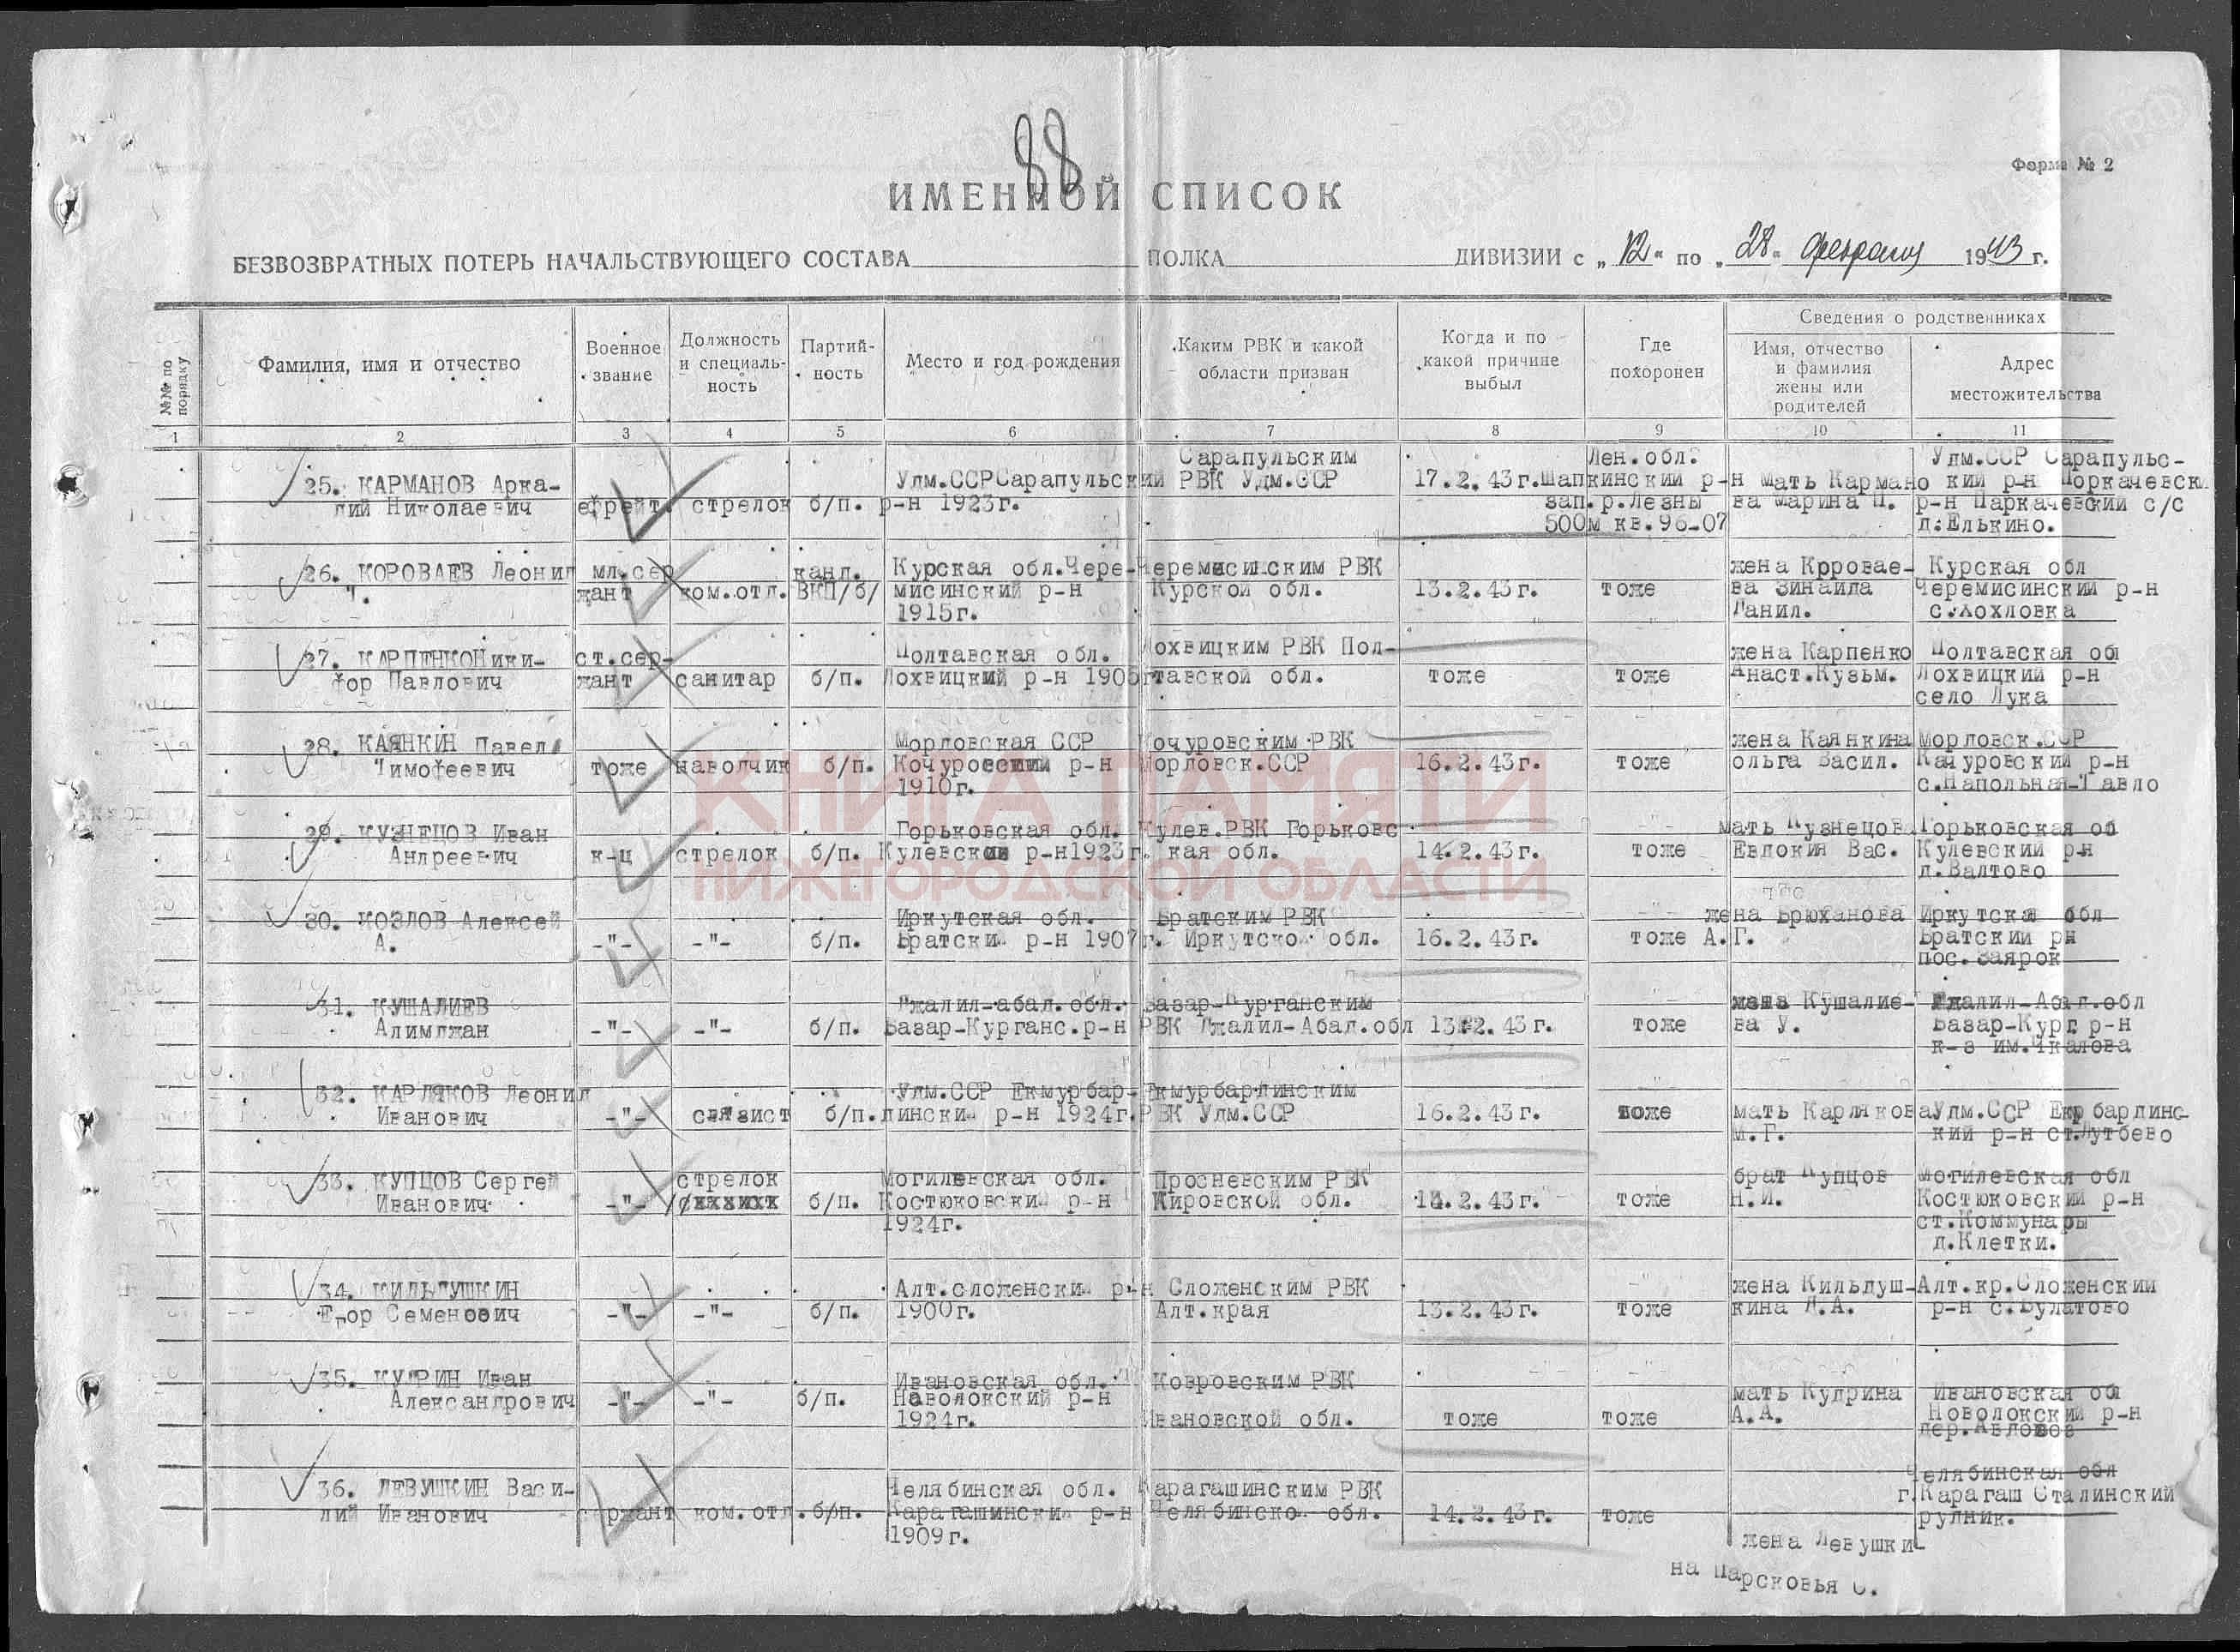 88
Форма № 2
ИМЕННОЙ СПИСОК
БЕЗВОЗВРАТНЫХ ПОТЕРЬ НАЧАЛЬСТВУЮЩЕГО СОСТАВА ПОЛКА ДИВИЗИИ с „12“ по „28“ февраля 1943 г.
№№ по порядку
Фамилия, имя и отчество
Военное звание
Должность и специаль-ность
Партий-ность
Место и год рождения
Каким РВК и какой области призван
Когда и по какой причине выбыл
Где похоронен
Сведения о родственниках
Имя, отчество и фамилия жены или родителей
Адрес местожительства
1 2 3 4 5 6 7 8 9 10 11
Сарапульским Лен.обл. Удм.ССР Сарапульс-
25. КАРМАНОВ Арка- Удм.ССРСарапульский РВК Удм.ССР 17.2.43г. Шапкинский р-н мать Кармано кий р-н
дий Николаевич ефрейт. стрелок б/п. р-н 1923г. зап.р.Лезны ва Марина П. р-н Паркачевский с/с
500м кв.96-07 д.Елькино.
26. КОРОВАЕВ Леонид мл.сер канд. Курская обл.Чере- Черемисинским РВК жена Крровае- Курская обл
". жант ком.отд. ВКП/б/ мисинский р-н Курской обл. 13.2.43г. тоже ва Зинаида Черемисинский р-н
1915г. Данил. с.Хохловка
27. КАРПЕНКОНики- ст.сер- Полтавская обл. Лохвицким РВК Пол- жена Карпенко Полтавская об
фор Павлович жант санитар б/п. Лохвицкий р-н 1905г тавской обл. тоже тоже Анаст.Кузьм. Лохвицкий р-н
село Лука
28. КАЯНКИН Павел Мордовская ССР Кочуровским РВК жена Каянкина Мордовск.ССР
Тимофеевич тоже наводчик б/п. р-н Мордовск.ССР 16.2.43г. тоже ольга Васил. Качуровский р-н
1910г. с.Напольная-Тавло
29. КУЗНЕЦОВ Иван Горьковская обл. Кулев.РВК Горьковс мать Кузнецова Горьковская об
Андреевич к-ц стрелок б/п. Кулевский р-н1923г. кая обл. 14.2.43г. тоже Евдокия Вас. Кулевский р-н
д.Валтово
30. КОЗЛОВ Алексей Иркутская обл. Братским РВК жена Брюханова Иркутская обл
А. -"- -"- б/п. Братски р-н 1907г. Иркутско обл. 16.2.43г. тоже А.Г. Братский рн
пос.Заярок
31. КУШАЛИЕВ Джалил-абад.обл. Базар-Курганским жена Кушалие-
Алимджан -"- -"- б/п. Базар-Курганс.р-н РВК Джалил-Абад.обл 13.2.43г. тоже ва У. Базар-Кург р-н
к-з им.Чкалова
32. КАРЛЯКОВ Леонид Удм.ССР Екмурбар- Екмурбардинским
Иванович -"- связист б/п. дински р-н 1924г. РВК Удм.ССР 16.2.43г. тоже мать Карлякова Удм.ССР
м.Г. кий р-н ст.Лутбево
33. КУПЦОВ Сергей стрелок Могилевская обл. Просневским РВК брат Купцов Могилевская обл
Иванович -"- б/п. Костюковски р-н Кировской обл. 14.2.43г. тоже Н.И. Костюковский р-н
1924г. ст.Коммунары
д.Клетки.
34. КИЛЬДУШКИН Алт.сложенски р-н Сложенским РВК жена Кильдуш- Алт.кр.Сложенский
Егор Семенович -"- -"- б/п. 1900г. Алт.края 13.2.43г. тоже кина Д.А. р-н с.Булатово
35. КУДРИН Иван Ивановская обл. Ковровским РВК
Александрович -"- -"- б/п. Наволокский р-н мать Кудрина Ивановская об
1924г. Ивановской обл. тоже тоже А.А. Новолокский р-н
дер.
Челябинская обл
36. ЛЕВУШКИН Васи- Челябинская обл. Карагашинским РВК г.Карагаш Сталинский
лий Иванович сержант ком.отд. б/п. Карагашински р-н Челябинско обл. 14.2.43г. тоже рудник.
1909г. жена Левушки-
на Парсковья С.
КНИГА ПАМЯТИ
НИЖЕГОРОДСКОЙ ОБЛАСТИ